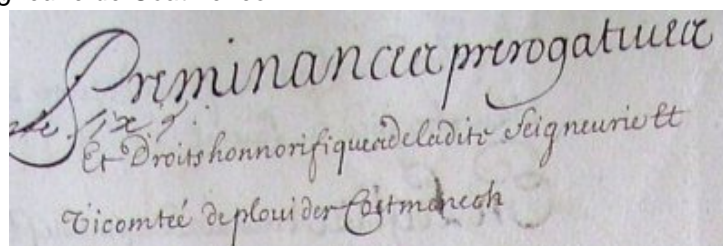 Preminances prerogatiues
Et Droits honnorifiques de ladite Seigneurie Et
Vicomteé de plouider Coëtmenech